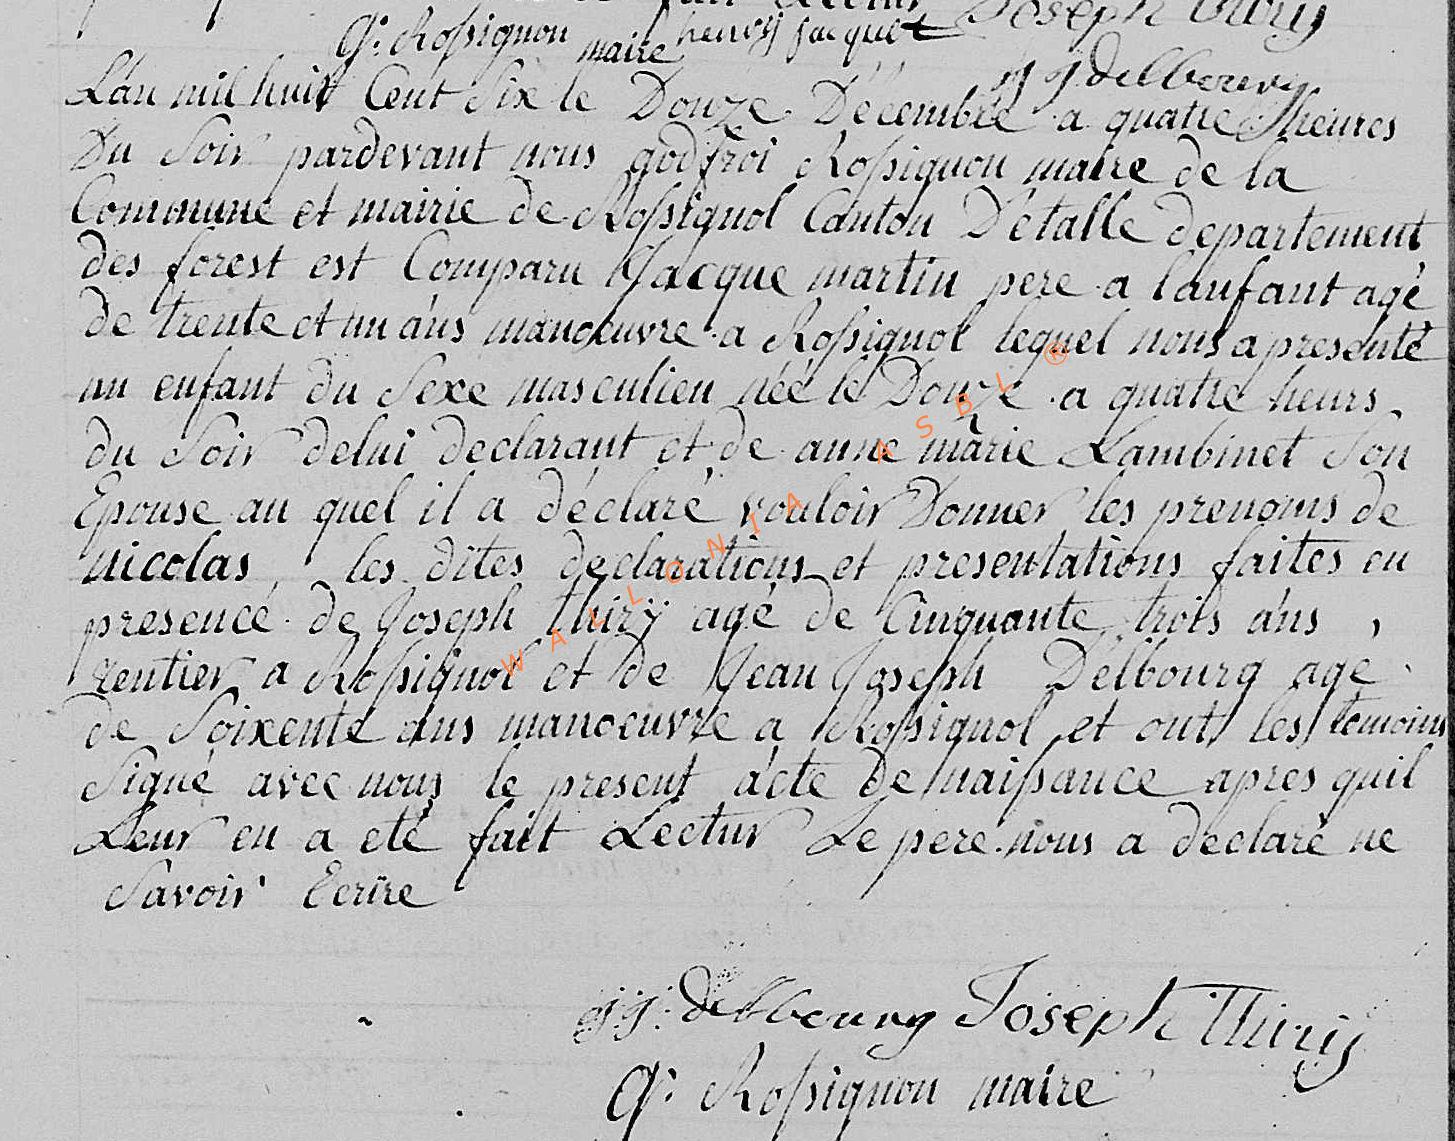 Joseph thiry
G. Rossignon maire henry jacquet
jj delbourg
L'an mil huit Cent Six le Douze Décembre a quatre heures
Du Soir pardevant nous godfroi Rossignon maire de la
Commune et mairie de Rossignol Canton D'étalle departement
des forest est Comparu Jacque martin pere a l'anfant agé
de trente et un ans manoeuvre a Rossignol lequel nous a presenté
un enfant du Sexe masculien néé le Douze a quatre heurs
du Soir delui declarant et de anne marie Lambinet Son
Epouse au quel il a déclaré vouloir Donner les prenoms de
nicolas, les dites declarations et presentations faites en
presence de Joseph thirÿ agé de Cinquante trois ans,
rentier a Rossignol et de Jean Joseph Delbourg age
de Soixente ans manoeuvre a Rossignol et ont les temoins
Signé avec nous le present acte De naissance apres quil
Leur en a eté fait Lectur Le pere nous a declaré ne
Savoir Ecrire
jj. delbourg Joseph Thiry
G. Rossignon maire
WALLONIA ASBL ®